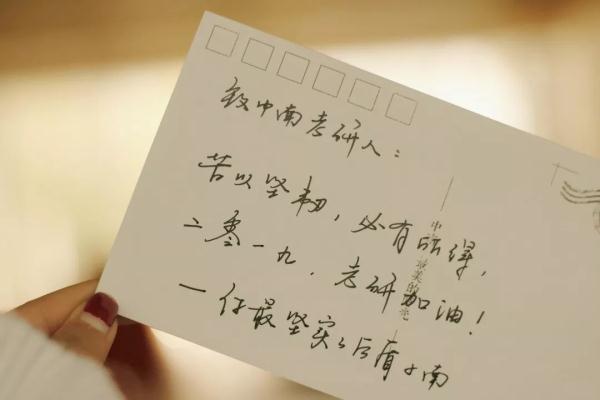 致中南考研人：
若以坚韧，必有所得，
二零一九，考研加油！
—你最坚实之后盾中南
最美的